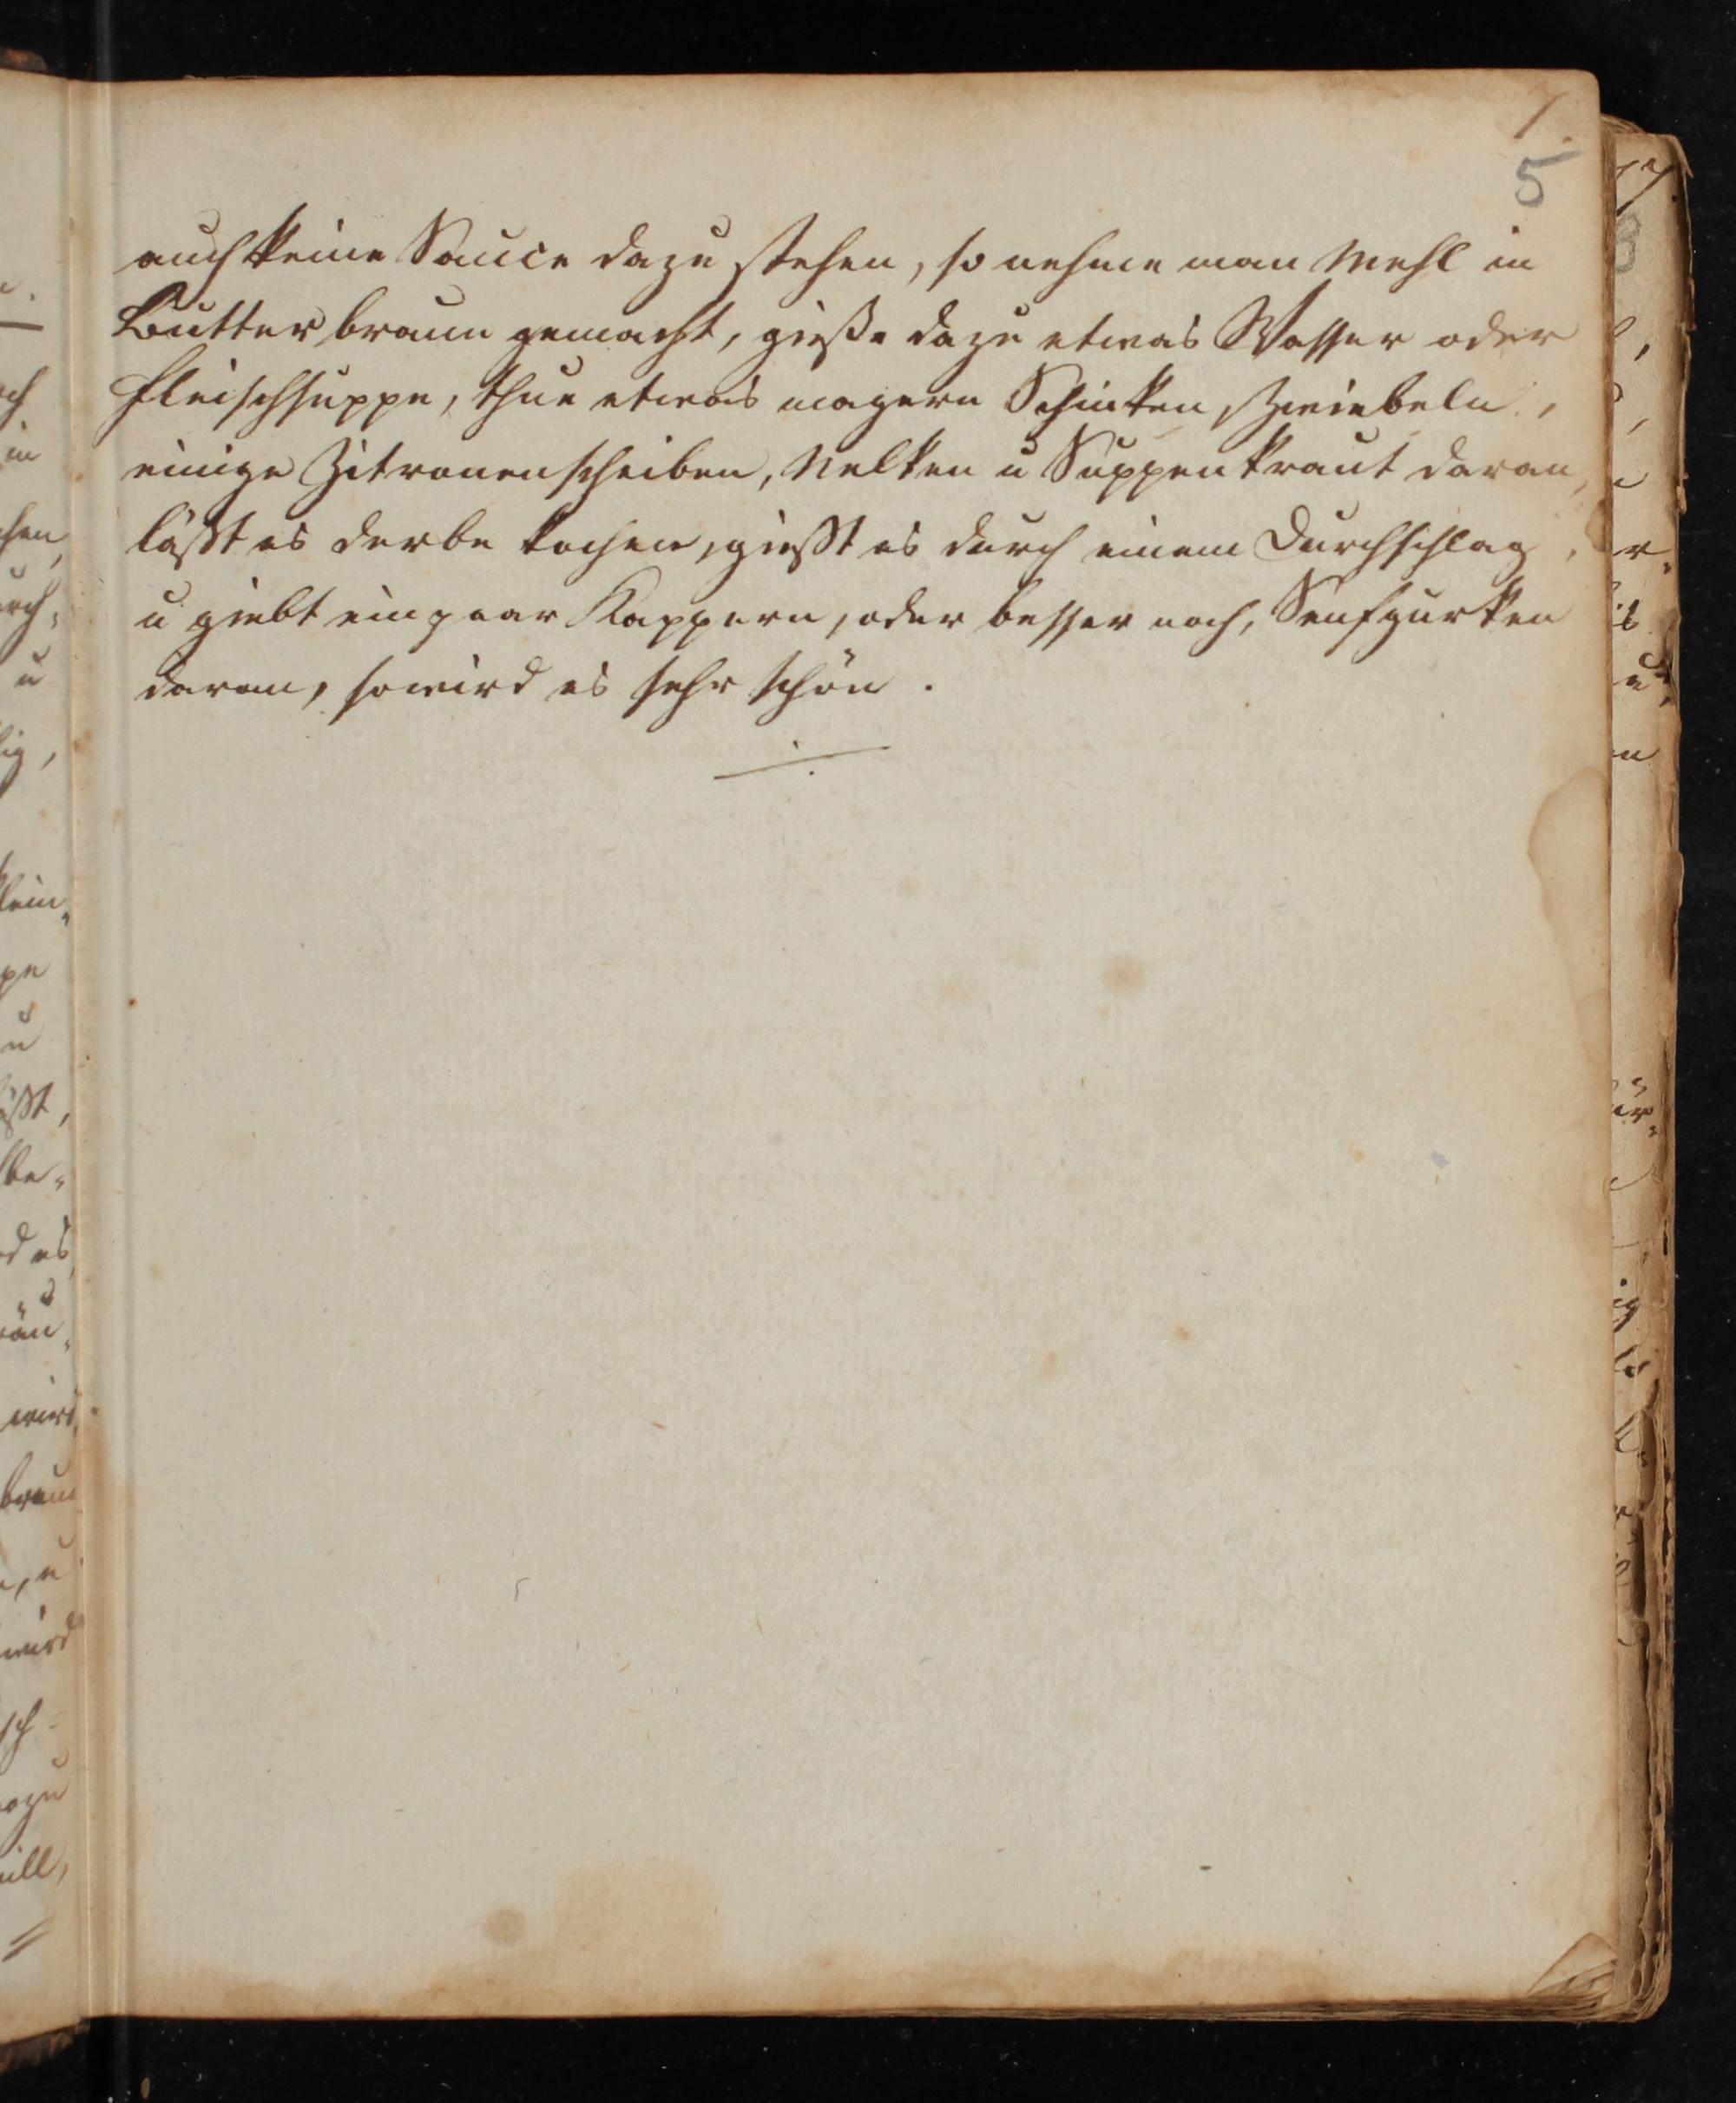 7.
5
auch keine Sauce dazu stehen, so nehme man Mehl in
Butter braun gemacht, gieße dazu etwas Wasser oder
Fleischsuppe, thue etwas magern Schinken, Zwiebeln,
einige Zitronenscheiben, Nelken u Suppenkraut daran,
läßt es derbe kochen, gießt es durch einem Durchschlag,
u giebt ein paar Kappern, oder besser noch, Senfgurken
daran, so wird es sehr schön.